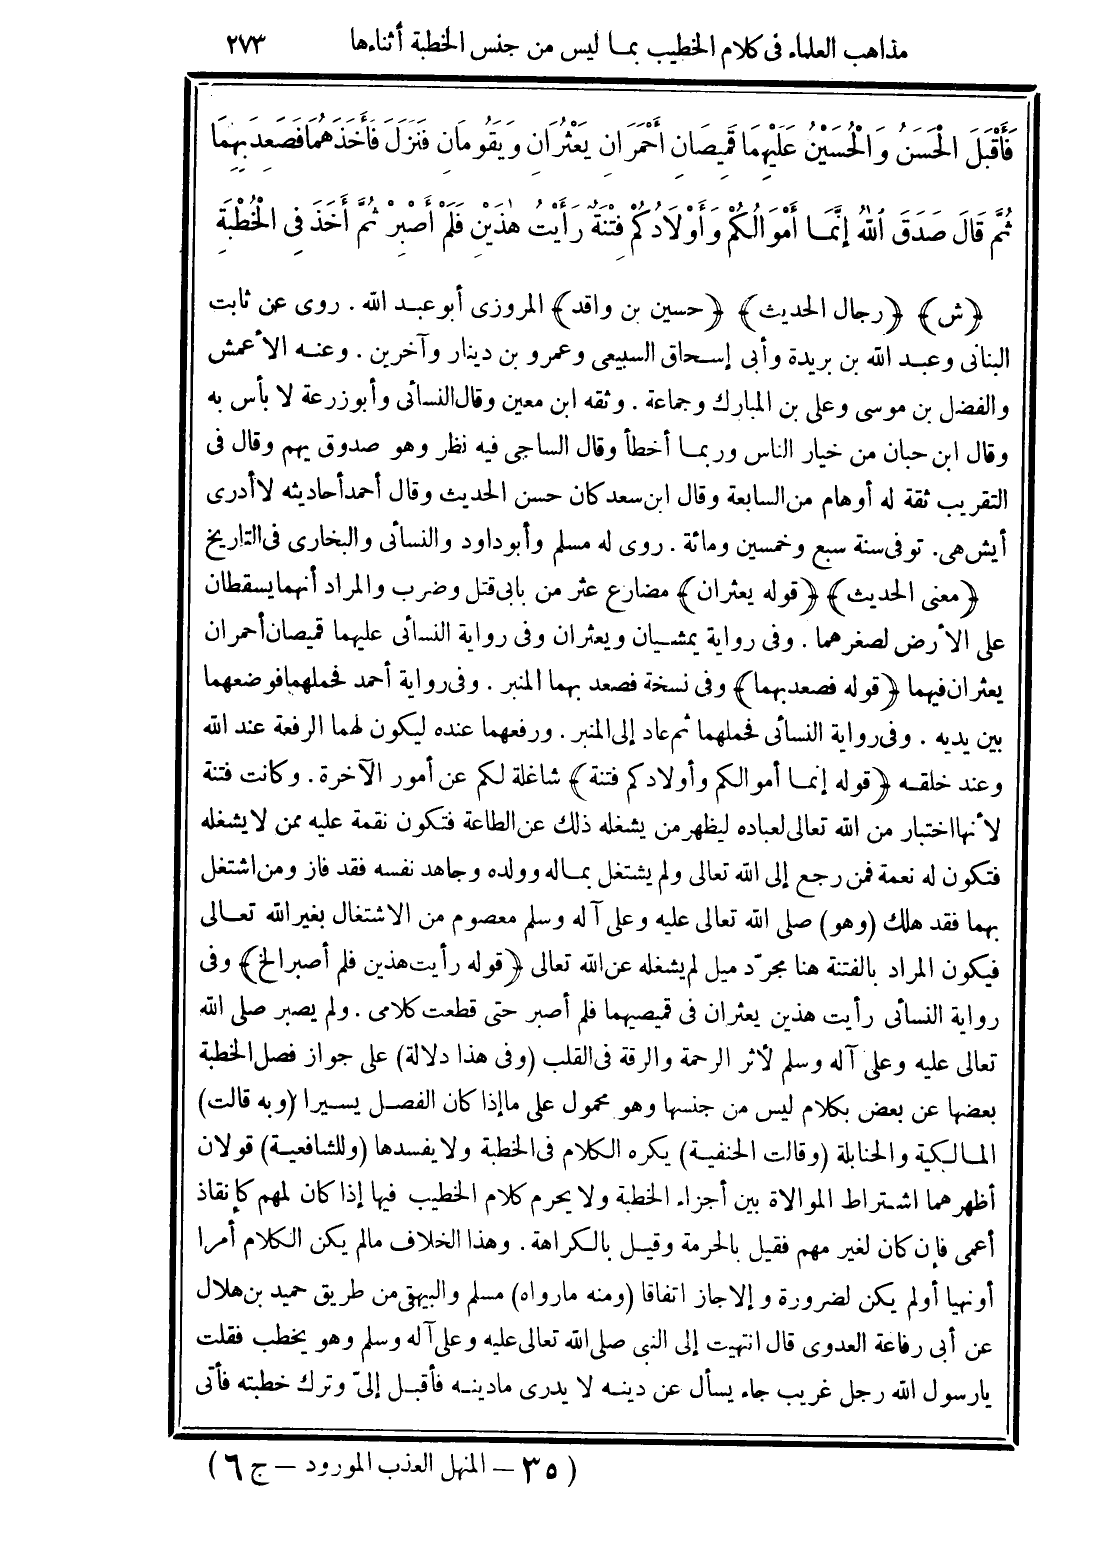 مذاهب العلماء فى كلام الخطيب بمـا ليس من جنس الخطبة أثناءها ٢٧٣
فَأَقْبَلَ الْحَسَنُ وَالْحُسَيْنُ عَلَيْهِمَا قَمِيصَانِ أَحْمَرَانِ يَعْثُرَانِ وَيَقُومَانِ فَنَزَلَ فَأَخَذَهُمَا فَصَعِدَ بِهِمَا
ثُمَّ قَالَ صَدَقَ اللهُ إِنَّمَا أَمْوَالُكُمْ وَأَوْلَادُكُمْ فِتْنَةٌ رَأَيْتُ هٰذَيْنِ فَلَمْ أَصْبِرْ ثُمَّ أَخَذَ فِى الْخُطْبَةِ
﴿ش﴾ ﴿رجال الحديث﴾ ﴿حسين بن واقد﴾ المروزى أبو عبد الله . روى عن ثابت
البنانى وعبد الله بن بريدة وأبى إسحاق السبيعى وعمرو بن دينار وآخرين . وعنه الأعمش
والفضل بن موسى وعلى بن المبارك وجماعة . وثقه ابن معين وقال النسائى وأبو زرعة لا بأس به
وقال ابن حبان من خيار الناس وربمـا أخطأ وقال الساجى فيه نظر وهو صدوق يهم وقال فى
التقريب ثقة له أوهام من السابعة وقال ابن سعد كان حسن الحديث وقال أحمد أحاديثه لا أدرى
أيش هى. توفى سنة سبع وخمسين ومائة . روى له مسلم وأبو داود والنسائى والبخارى فى التاريخ
﴿معنى الحديث﴾ ﴿قوله يعثران﴾ مضارع عثر من بابى قتل وضرب والمراد أنهما يسقطان
على الأرض لصغرهما . وفى رواية يمشيان ويعثران وفى رواية النسائى عليهما قميصان أحمران
يعثران فيهما ﴿قوله فصعد بهما﴾ وفى نسخة فصعد بهما المنبر . وفى رواية أحمد فحملهما فوضعهما
بين يديه . وفى رواية النسائى فحملهما ثم عاد إلى المنبر . ورفعهما عنده ليكون لهما الرفعة عند الله
وعند خلقه ﴿قوله إنمـا أموالكم وأولادكم فتنة﴾ شاغلة لكم عن أمور الآخرة . وكانت فتنة
لأنها اختبار من الله تعالى لعباده ليظهر من يشغله ذلك عن الطاعة فتكون نقمة عليه ممن لا يشغله
فتكون له نعمة فمن رجع إلى الله تعالى ولم يشتغل بمـاله وولده وجاهد نفسه فقد فاز ومن اشتغل
بهما فقد هلك (وهو) صلى الله تعالى عليه وعلى آله وسلم معصوم من الاشتغال بغير الله تعـالى
فيكون المراد بالفتنة هنا مجرّد ميل لم يشغله عن الله تعالى ﴿قوله رأيت هذين فلم أصبر الخ﴾ وفى
رواية النسائى رأيت هذين يعثران فى قميصيهما فلم أصبر حتى قطعت كلامى . ولم يصبر صلى الله
تعالى عليه وعلى آله وسلم لأثر الرحمة والرقة فى القلب (وفى هذا دلالة) على جواز فصل الخطبة
بعضها عن بعض بكلام ليس من جنسها وهو محمول على ما إذا كان الفصـل يسيرا (وبه قالت)
المـالكية والحنابلة (وقالت الحنفية) يكره الكلام فى الخطبة ولا يفسدها (وللشافعية) قولان
أظهرهما اشتراط الموالاة بين أجزاء الخطبة ولا يحرم كلام الخطيب فيها إذا كان لمهم كإنقاذ
أعمى فإن كان لغير مهم فقيل بالحرمة وقيـل بالكراهة . وهذا الخلاف مالم يكن الكلام أمرا
أونهيا أولم يكن لضرورة وإلا جاز اتفاقا (ومنه مارواه) مسلم والبيهقى من طريق حميد بن هلال
عن أبى رفاعة العدوى قال انتهيت إلى النبى صلى الله تعالى عليه وعلى آله وسلم وهو يخطب فقلت
يارسول الله رجل غريب جاء يسأل عن دينه لا يدرى مادينه فأقبـل إلىّ وترك خطبته فأتى
(٣٥ – المنهل العذب المورود – ج ٦)